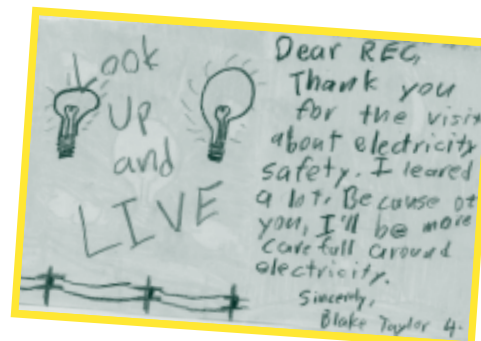 Look
Up
and
LIVE
Dear REC,
Thank you
for the visit
about electricity
safety. I leared
a lot. Because of
you, I'll be more
carefull around
electricity.
Sincerly,
Blake Taylor 4-